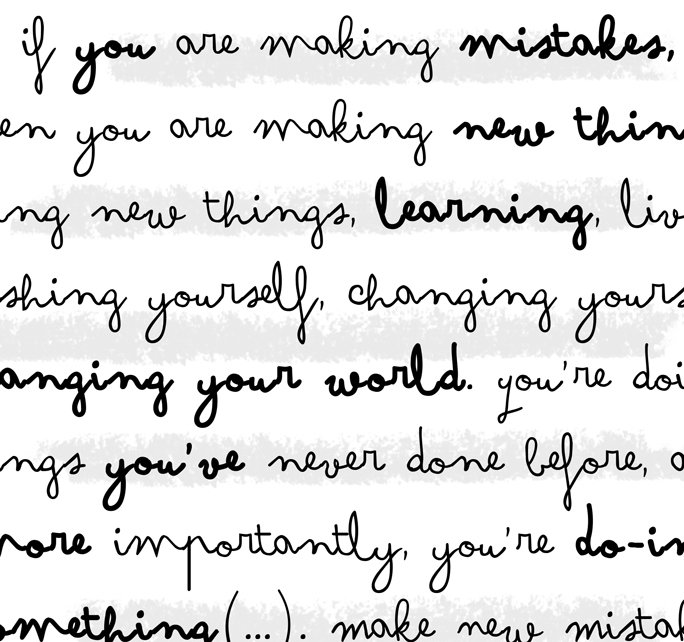 if you are making mistakes,
en you are making new thin
ng new things, learning, liv
shing yourself, changing yours
anging your world. you're doi
ngs you've never done before, a
more importantly, you're do-in
omething(...). make new mistak